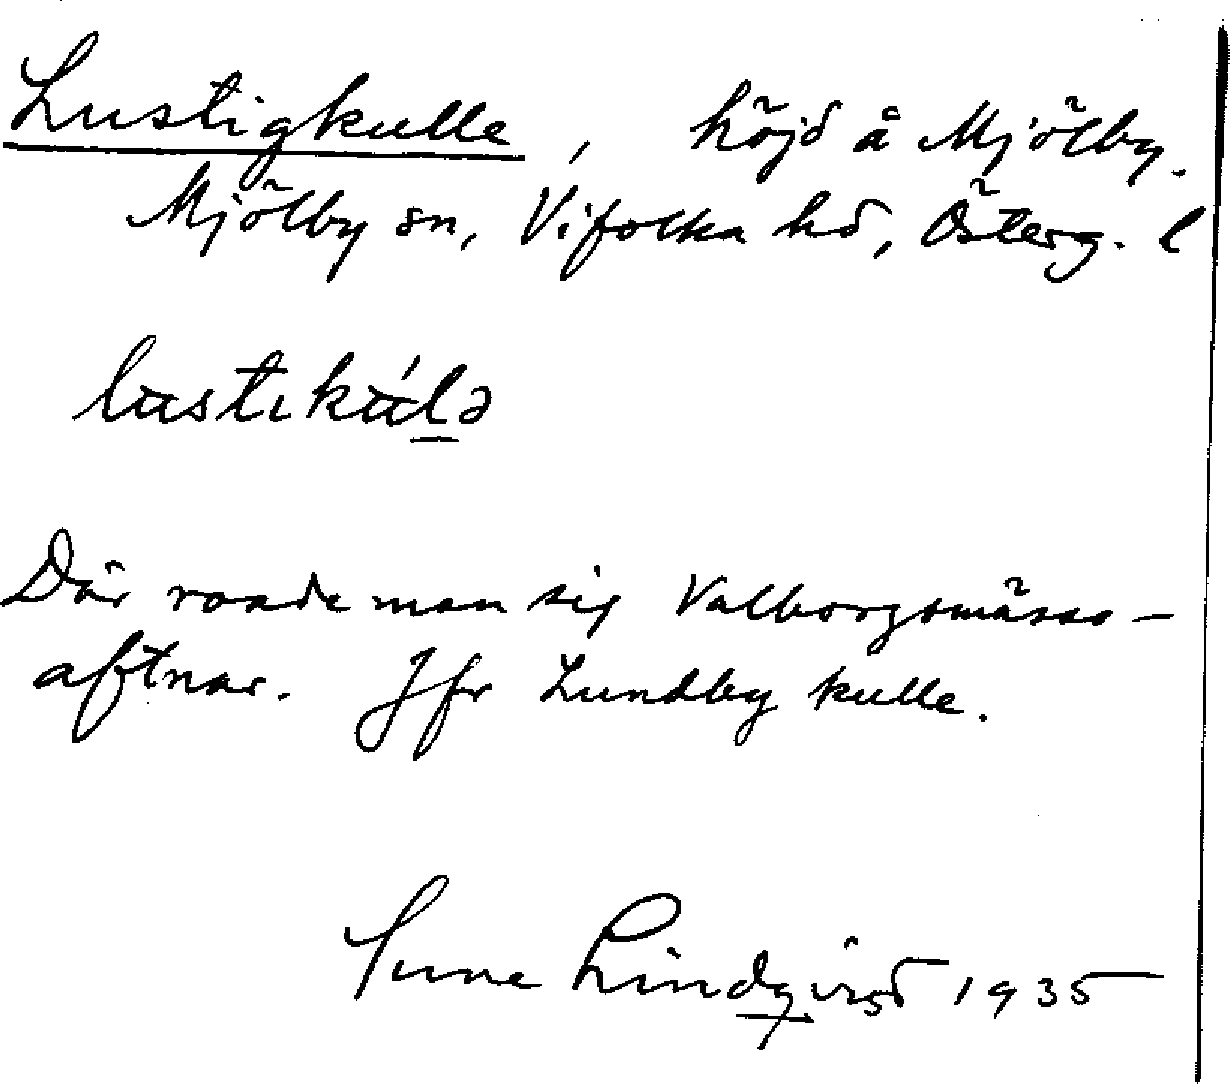 Lustigkulle, höjd å Mjölby.
Mjölby sn, Vifolka hd, Österg. l
lustıkúlə
Där roade man sig Valborgsmässo-
aftnar. Jfr Lundby kulle.
Sune Lindqvist 1935